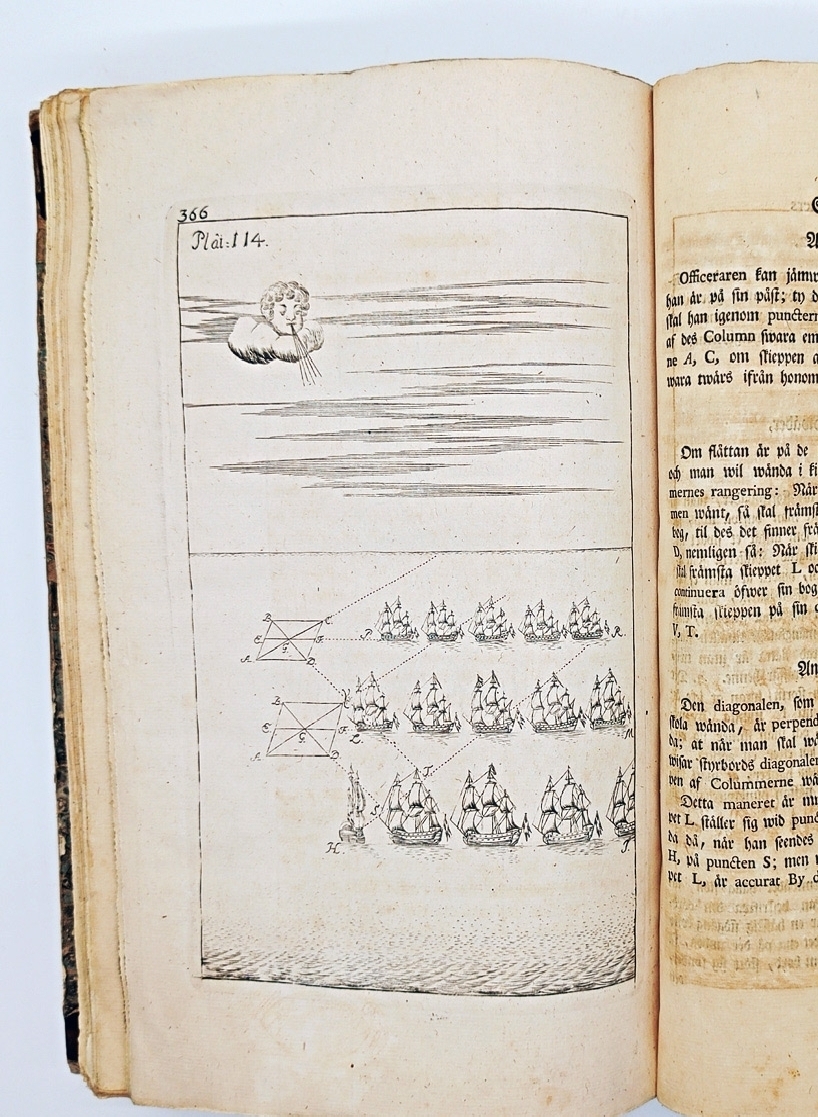 366
Plåt: 114.
B C
E F P R
G
A D
B C
E F L M
G
A D
T
S
H
Officeraren kan jämw
han är på sin påst; ty d
skal han igenom puncter
af des Column swara em
ne A, C, om skieppen a
wara twärs ifrån honom
Om flåttan är på de
och man wil wända i
mernes rangering: När
men wänt, så skal främst
bog, til des det finner frä
D, nemligen så: När ski
främsta skieppet L oc
continuera öfwer sin bog
främsta skieppen på sin
V, T.
An
Den diagonalen, som
skola wända, är perpend
da; at när man skal wä
wisar styrbords diagonalen
pen af Colummerne wä
Detta maneret är
pet L ställer sig wid punc
da då, när han seendes
H, på puncten S; men
pet L, är accurat By d